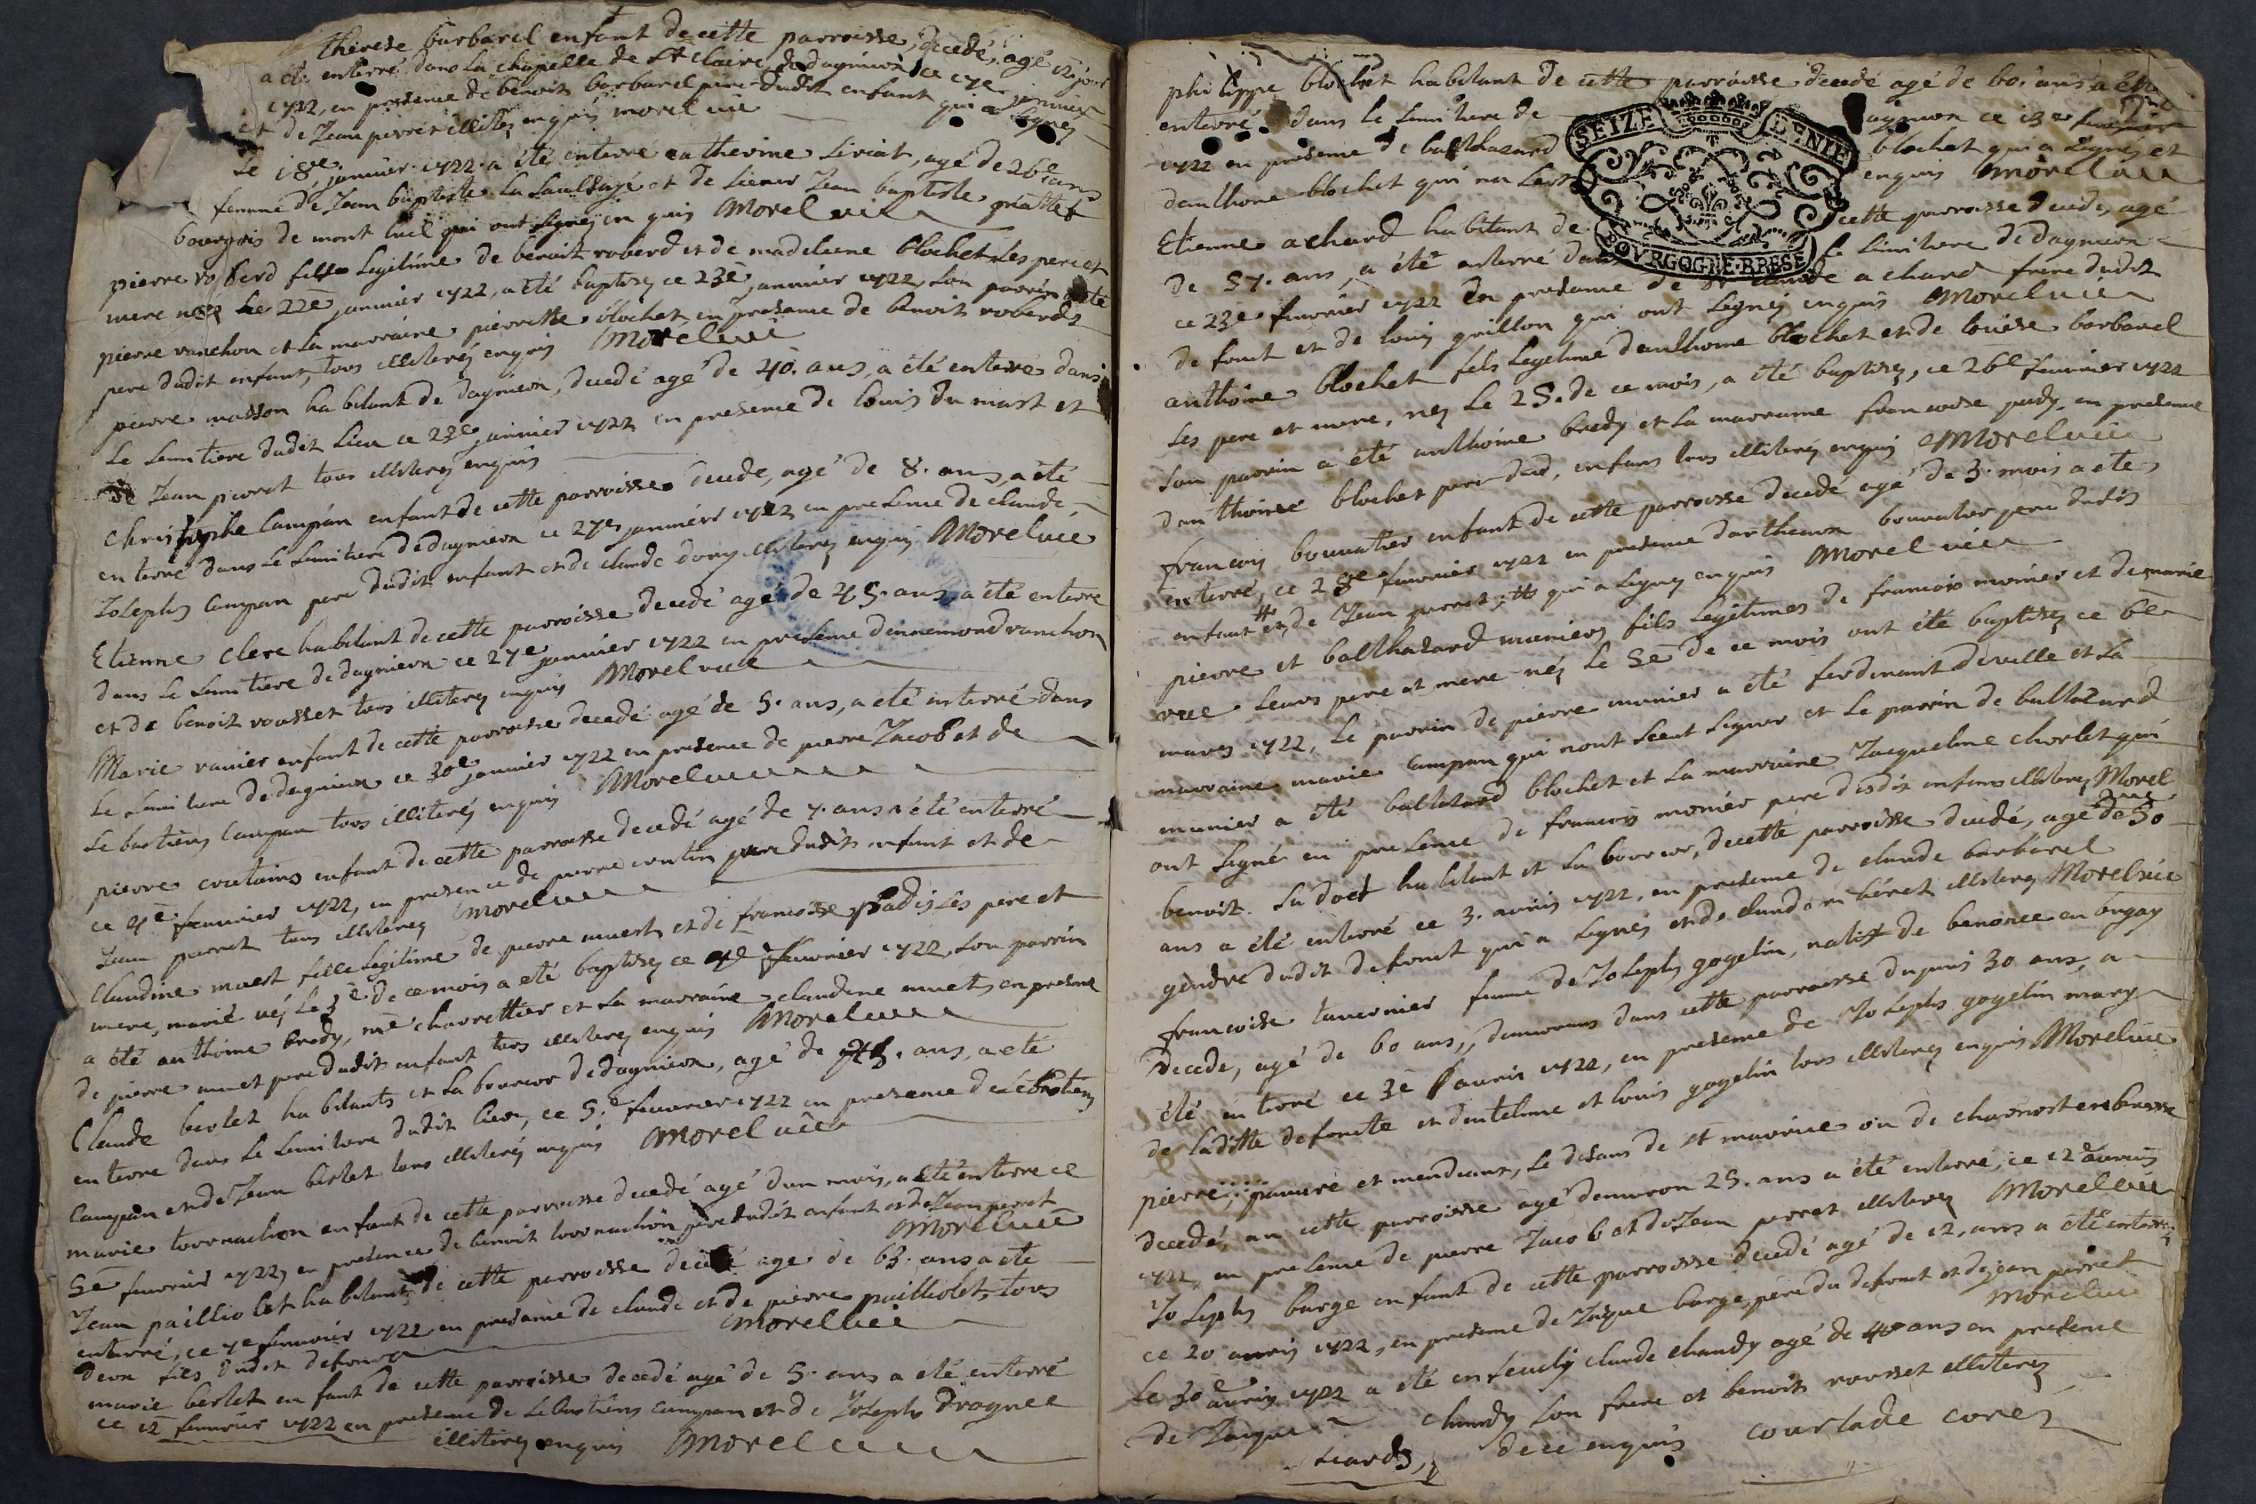 therese barbarel enfant de cette parroisse, decedé, agé 12 jour
a été enterré dans la chapelle de Ste Claire de dagnieu ce 17e janvier
1722, en presence de benoit barbarel pere dudit enfant qui a signé
et de Jean pirret illiteré enquis morel vic
Le 18e janvier 1722 a été enterré catherine siriat, agé de 26e ans
femme de Jean baptiste La Saulsaye et de sieur Jean baptiste
bourgois de mont luel qui ont signéz enquis Morel vic
pierre roberd fils Legitime de benoit roberd et de madeleine blochet Les pere et
mere nez Le 22e janvier 1722, a été baptisez ce 23e janvier 1722, son parrin a été
pierre ranchon et La marraine pierrette blochet, en presence de benoit roberd
pere dudit enfant, tous illiteréz enquis Morel vic
pierre masson habitant de dagnieu, decedé agé de 40. ans, a été enterré dans
Le semitiere dudit Lieu ce 23e janvier 1722 en presence de Louis du mast et
de Jean pierret tous illiterez enquis
Christophe Campan enfant de cette parroisse decede, agé de 8. ans, a été
enterré dans Le semitiere de dagnieu ce 27e janvier 1722 en presence de claude
Joseph Campan pere dudit enfant et de claude illiterez enquis Morel vic
Etienne clere habitant de cette parroisse decedé agé de 45. ans a été enterré
dans Le semitiere de dagnieu ce 27e janvier 1722 en presence dennemond ranchon
et de benoit rousset tous illiterez enquis Morel vic
Marie ranier enfant de cette parroisse decedé agé de 5. ans, a été enterré dans
Le semitiere de dagnieu ce 30e janvier 1722 en presence de pierre Jacob et de
Sebastien Campan tous illiteréz enquis Morel vic
pierre coutains enfant de cette parroisse decedé agé de 7. ans a été enterré
ce 4e feuvrier 1722, en presence de pierre coutin pere dudit enfant et de
Jean pierret tous illiterez Morel vic
Claudine muest fille Legitime de pierre muest et de francoise padis Les pere et
mere, marié néz Le 3e de ce mois a été baptisez ce feuvrier 1722, son parrin
a été anthoine bredy, me charettier et La marraine claudine muet, en presence
de pierre muet pere dudit enfant tous illiterez enquis Morel vic
Claude berlet habitants et Laboureur de dagnieu, agé de ans, a été
enterré dans Le semitiere dudit lieu, ce 5.e feuvrier 1722 en presence de sebastien
Campan et de Jean berlet tous illiterez enquis Morel vic
marie tournachon enfant de cette parroisse decedé agé dun mois, a été enterré ce
5e feuvrier 1722, en presence de benoit tournachon pere dudit enfant et de Jean perret
Morel vic
Jean paillolet habitant de cette parroisse decedé agé de 63. ans a été
enterré, ce 7e feuvrier 1722 en presence de claude et de pierre paillolet, tous
deux fils dudit defunct Morel vic
marie berlet enfant de cette parroisse decedé agé de 5. ans a été enterré
ce 12 feuvrier 1722 en presence de Sebastien Campan et de Joseph Drognee
illiterez enquis Morel vic
philippe blochet habitant de cette parroisse decedé agé de 60. ans a été
enterré dans le semitiere de dagnieu ce 13e
1722 en presence de balthazard blochet qui a signé, et
danthoine blochet qui na enquis Morel vic
SEIZE DENIE
BOVRGOGNE-BRESSE
Etienne achard habitant de cette parroisse decede, agé
de 57. ans, a été enterré dans le semitiere de dagnieu
ce 23e feuvrier 1722 en presence de achard frere dudit
defunct et de Louis grillon qui ont signéz enquis Morel vic
anthoine blochet fils Legetime danthoine blochet et de Louise barbarel
Les pere et mere, nez Le 25. de ce mois, a été baptisez, ce 26e feuvrier 1722
Son parrin a été anthoine bredy et La marraine francoise pady, en presence
danthoine blochet pere dud. enfans tous illiteréz enquis Morel vic
francois bouvatier enfant de cette parroisse decedé agé de 3. mois a été
enterré, ce 28e feuvrier 1722 en presence bouvatier pere dudit
enfant et de Jean perret, qui a signez enquis Morel vic
pierre et balthazard muniers fils Legitimes de francois munier et de marie
vree Leurs pere et mere néz Le 5e de ce mois ont été baptisez ce 6e
mars 1722, Le parrin de pierre munier a été ferdinant deville et La
marraine marie campan qui nont sceut signer et Le parrin de balthazard
munier a été balthazard blochet et La marraine Jacqueline chorlet qui
ont signéz en presence de francois monier pere desdit enfans illiterez Morel
benoit Ludoet habitant et Laboureur, de cette parroisse decedé, agé de 50
ans a été enterré ce 3. avris 1722, en presence de claude barbarel
gendre dudit defunct qui a signéz et de claude illiterez Morel vic
francoise tavernier femme de Joseph gogelin, natif de benonce en bugay
decede, agé de 60 ans, demeurans dans cette parroisse depuis 30 ans, a
été enterré ce 3e avris 1722, en presence de Joseph gogelin mary
de Laditte defuncte et dentelme et Louis gogelin tous illiterez enquis Morel vic
pierre, pauvre et mendiant, se disant de st maurice ou de charnost en bresse
decedé, en cette parroisse agé denviron 25. ans a été enterré, ce 12e avris
1722, en presence de pierre Jacob et de Jean perret illiterez Morel vic
Joseph barge enfant de cette parroisse decedé agé de 12, ans a été enterré
ce 20 avris 1722, en presence de Jaque barge, pere du defunct et de jean pirret
Morel vic
Le 30e avris 1722 a été enseuely claude chandy agé de 40 ans en presence
de Jaque chandy son frere et benoit rousset illiterez
de ce enquis courlade curez